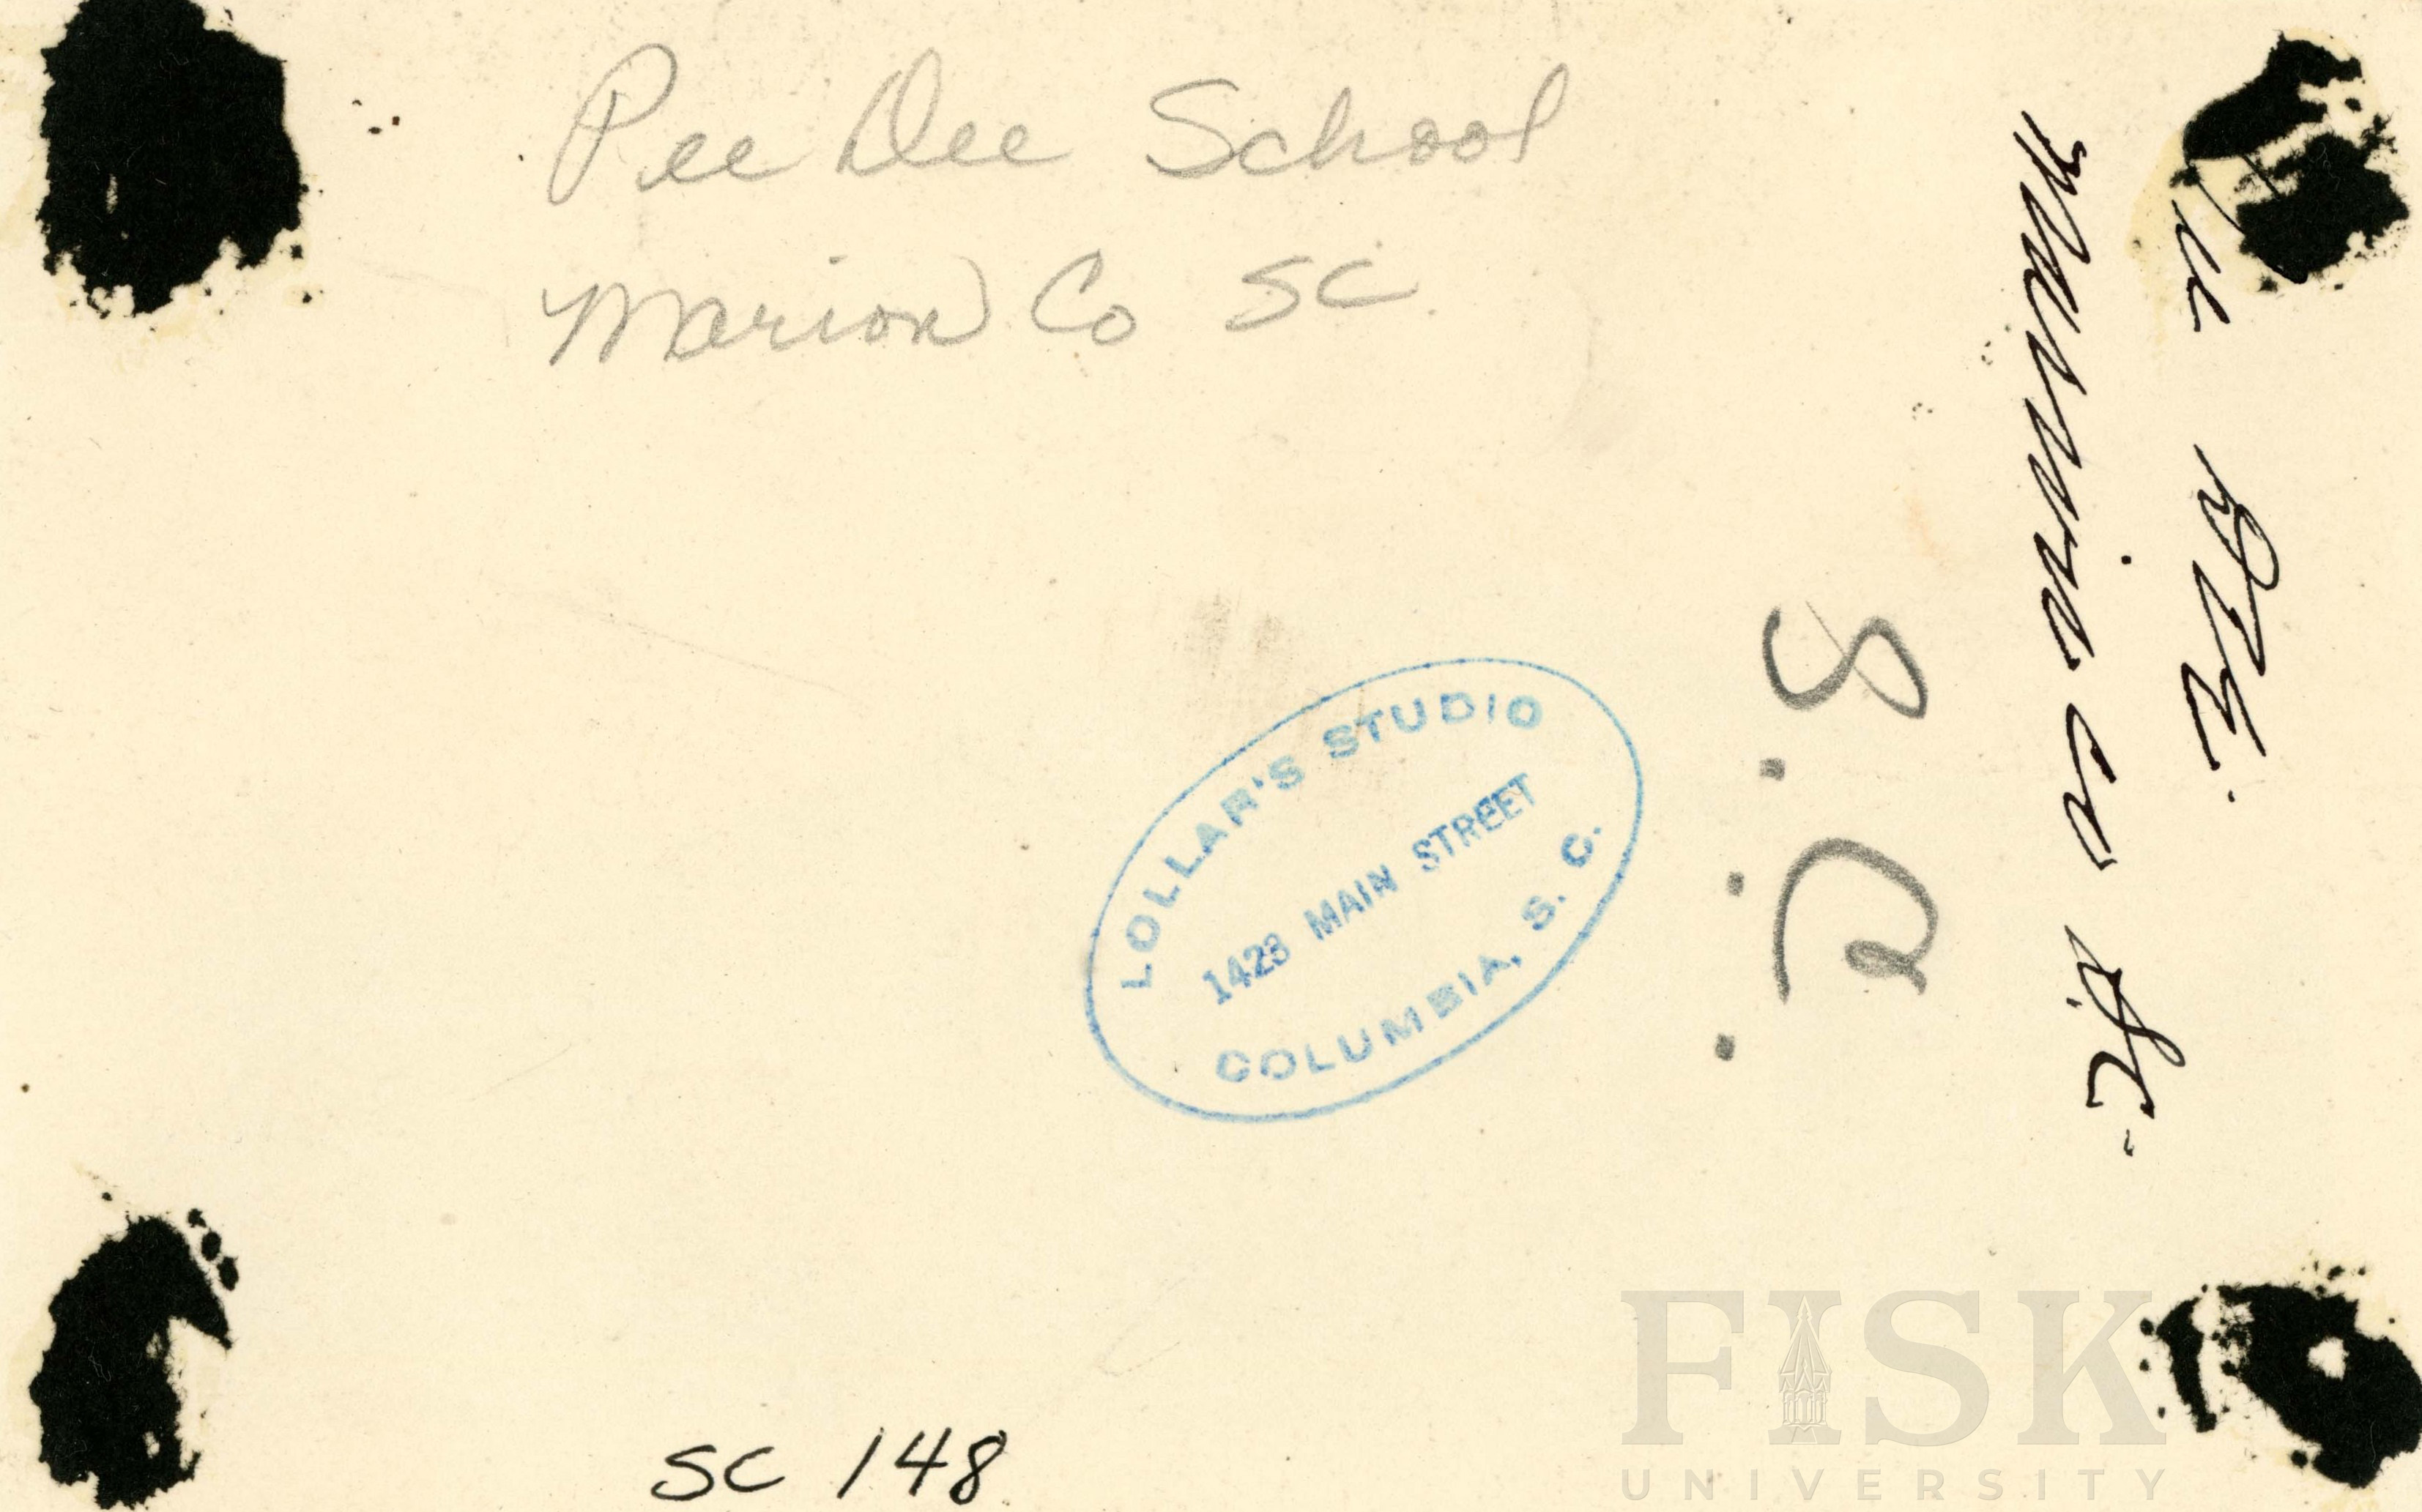 Pee Dee School
Marion Co SC.
LOLLAR'S STUDIO
1423 MAIN STREET
COLUMBIA, S. C.
S.C.
Marion co S.C.
SC 148
FISK
UNIVERSITY